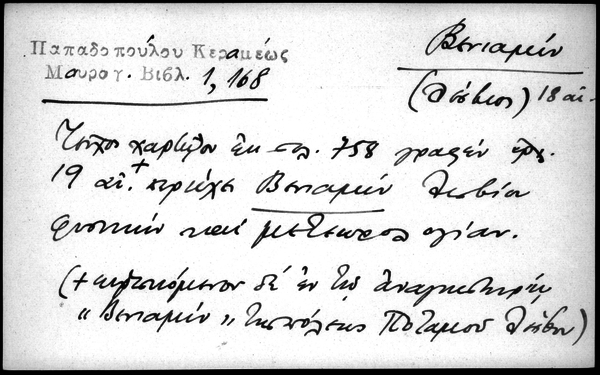 Παπαδοπούλου Κεραμέως
Μαυρογ. Βιβλ. 1, 168
Βενιαμίν
(Λέσβιος) 18 αἰ.
Τεῦχος χαρτῷον ἐκ σελ. 758 γραφὲν ἀρχ.
19 αἰ.+ περιέχει Βενιαμίν Λεσβίου
φυσικὴν καὶ μετεωρολογίαν.
(+ εὑρισκόμενον δὲ ἐν τῷ Ἀναγνωστηρίῳ
"Βενιαμίν" τῆς πόλεως Ποταμοῦ Λέσβου)